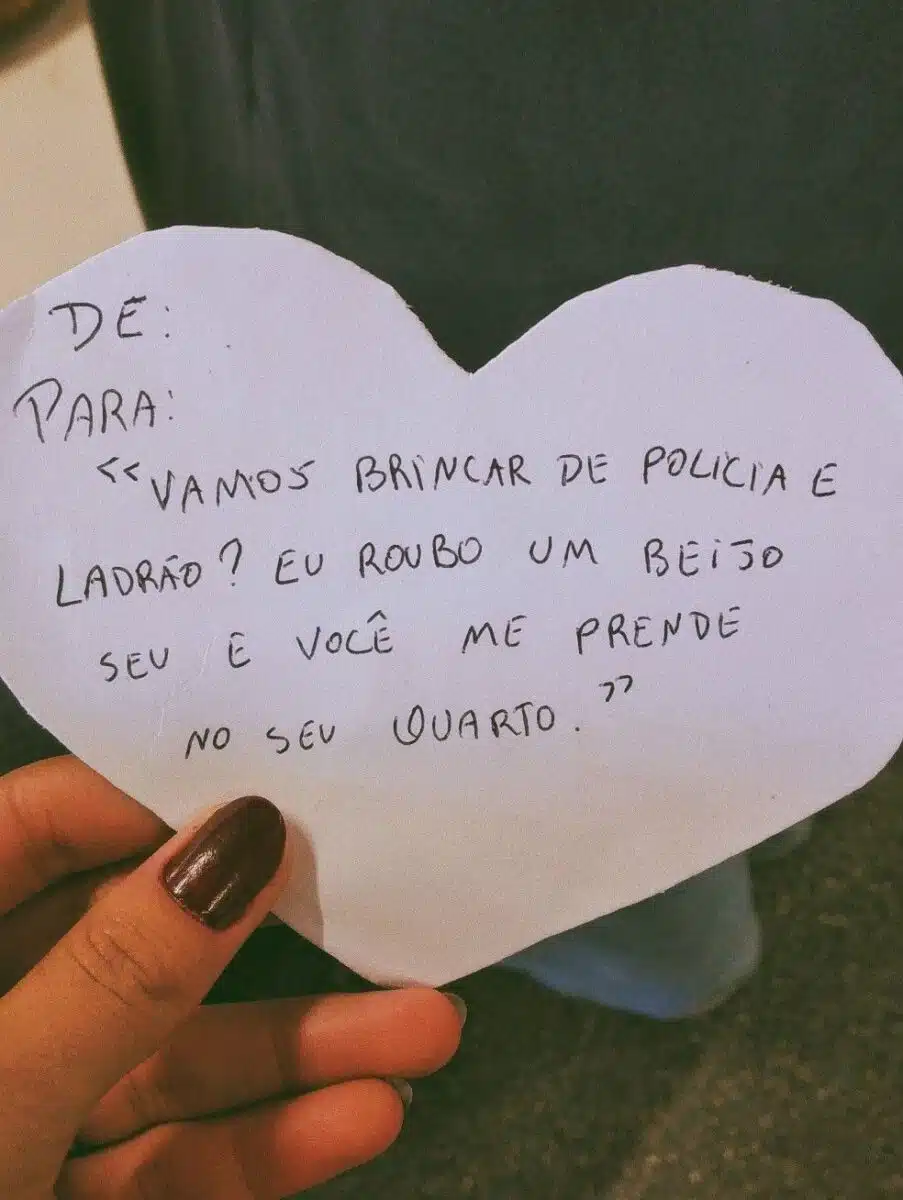 DE:
PARA:
“VAMOS BRINCAR DE POLICIA E
LADRÃO? EU ROUBO UM BEIJO
SEU E VOCÊ ME PRENDE
NO SEU QUARTO.”